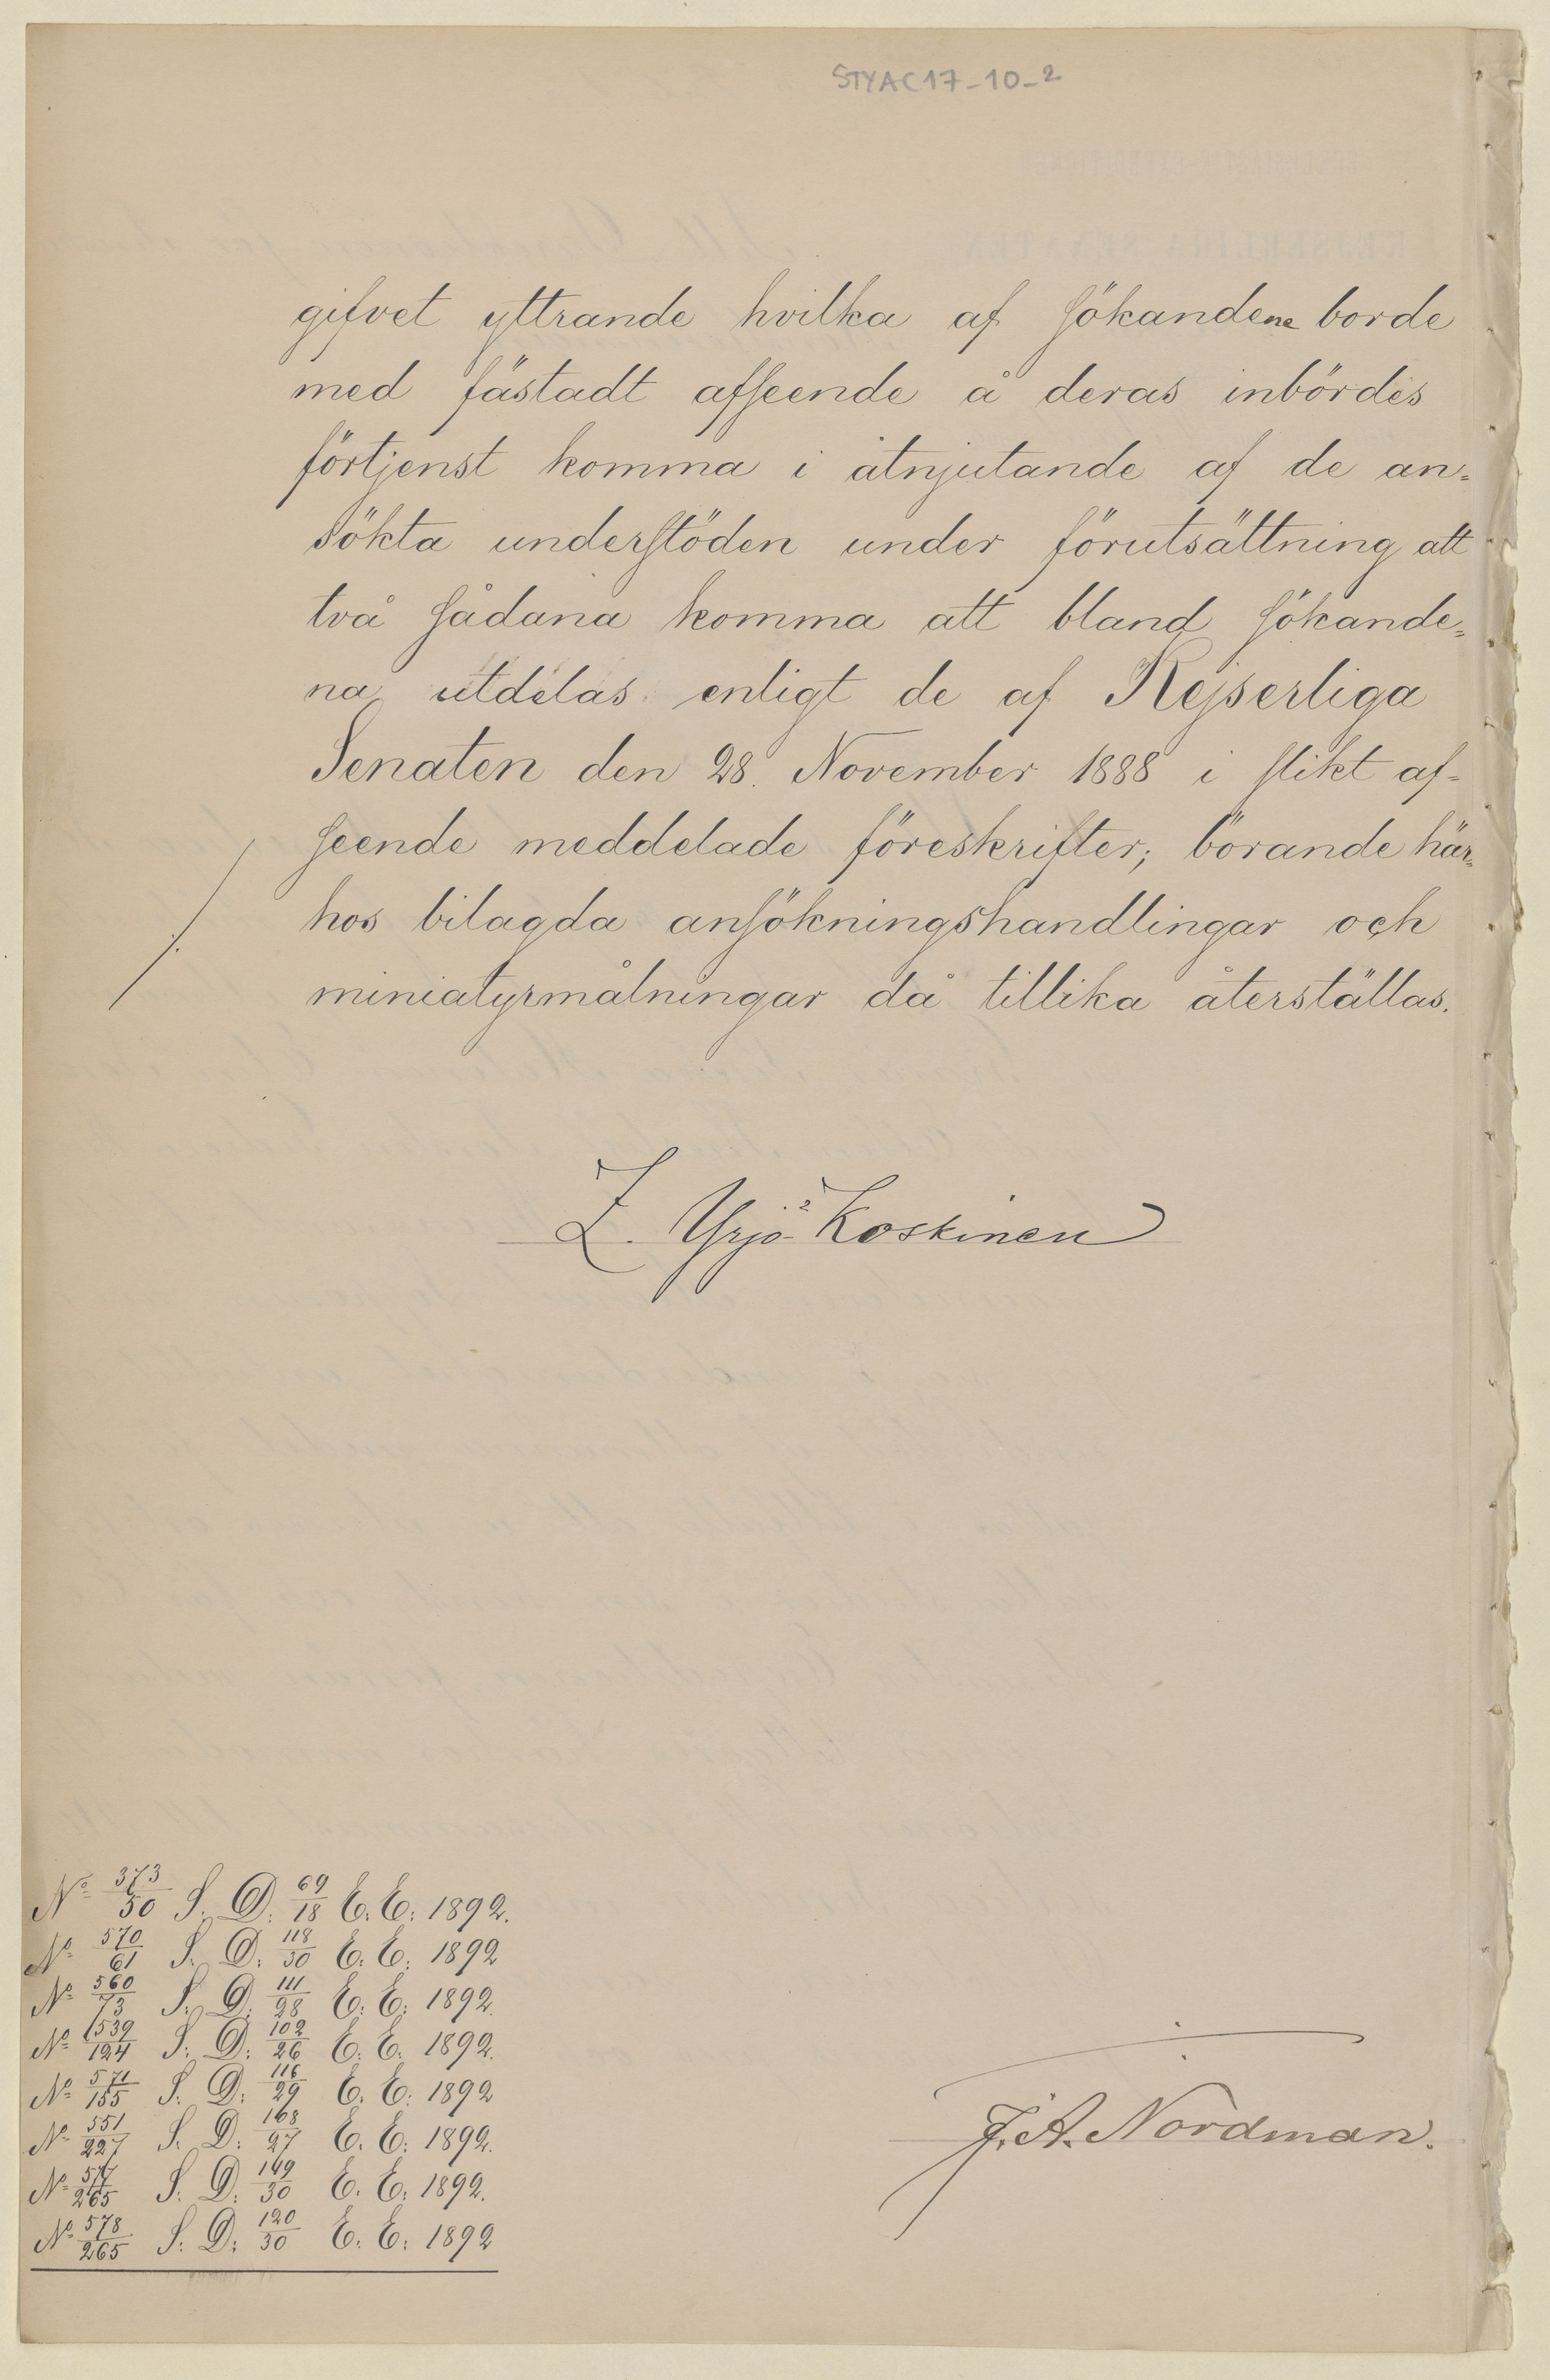 STYAC17-10-2
gifvet yttrande hvilka af sökandene borde
med fästadt afseende å deras inbördes
förtjenst komma i åtnjutande af de an-
sökta understöden under förutsättning att
två sådana komma att bland sökande-
na utdelas enligt de af Kejserliga
Senaten den 28 November 1888 i slikt af-
seende meddelade föreskrifter; börande här-
hos bilagda ansökningshandlingar och
miniatyrmålningar då tillika återställas.
Z. Yrjö-Koskinen
No 373/50 S. D. 69/18 E. E. 1892.
No 570/61 S. D. 118/30 E. E. 1892
No 560/73 S. D. 111/28 E. E. 1892.
No 539/124 S. D. 102/26 E. E. 1892.
No 571/155 S. D. 116/29 E. E. 1892
No 551/227 S. D. 108/27 E. E. 1892.
No 577/265 S. D. 119/30 E. E. 1892.
No 578/265 S. D. 120/30 E. E. 1892
J. A. Nordman.